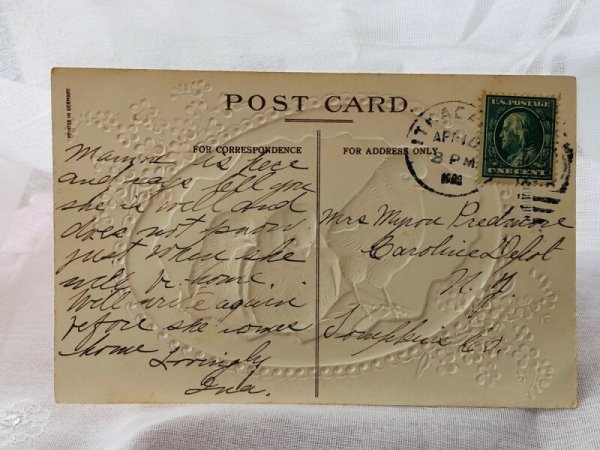 PRINTED IN GERMANY
POST CARD
FOR CORRESPONDENCE
FOR ADDRESS ONLY
ITHACA
APR 10
8 PM
U.S. POSTAGE
ONE CENT
Mamma is here
and says tell you
she is well and
does not know
just when she
will be home.
Will write again
before she comes
home Lovingly
Ina.
Mrs Myron Predmore
Caroline Depot
N. Y.
Tompkins Co.